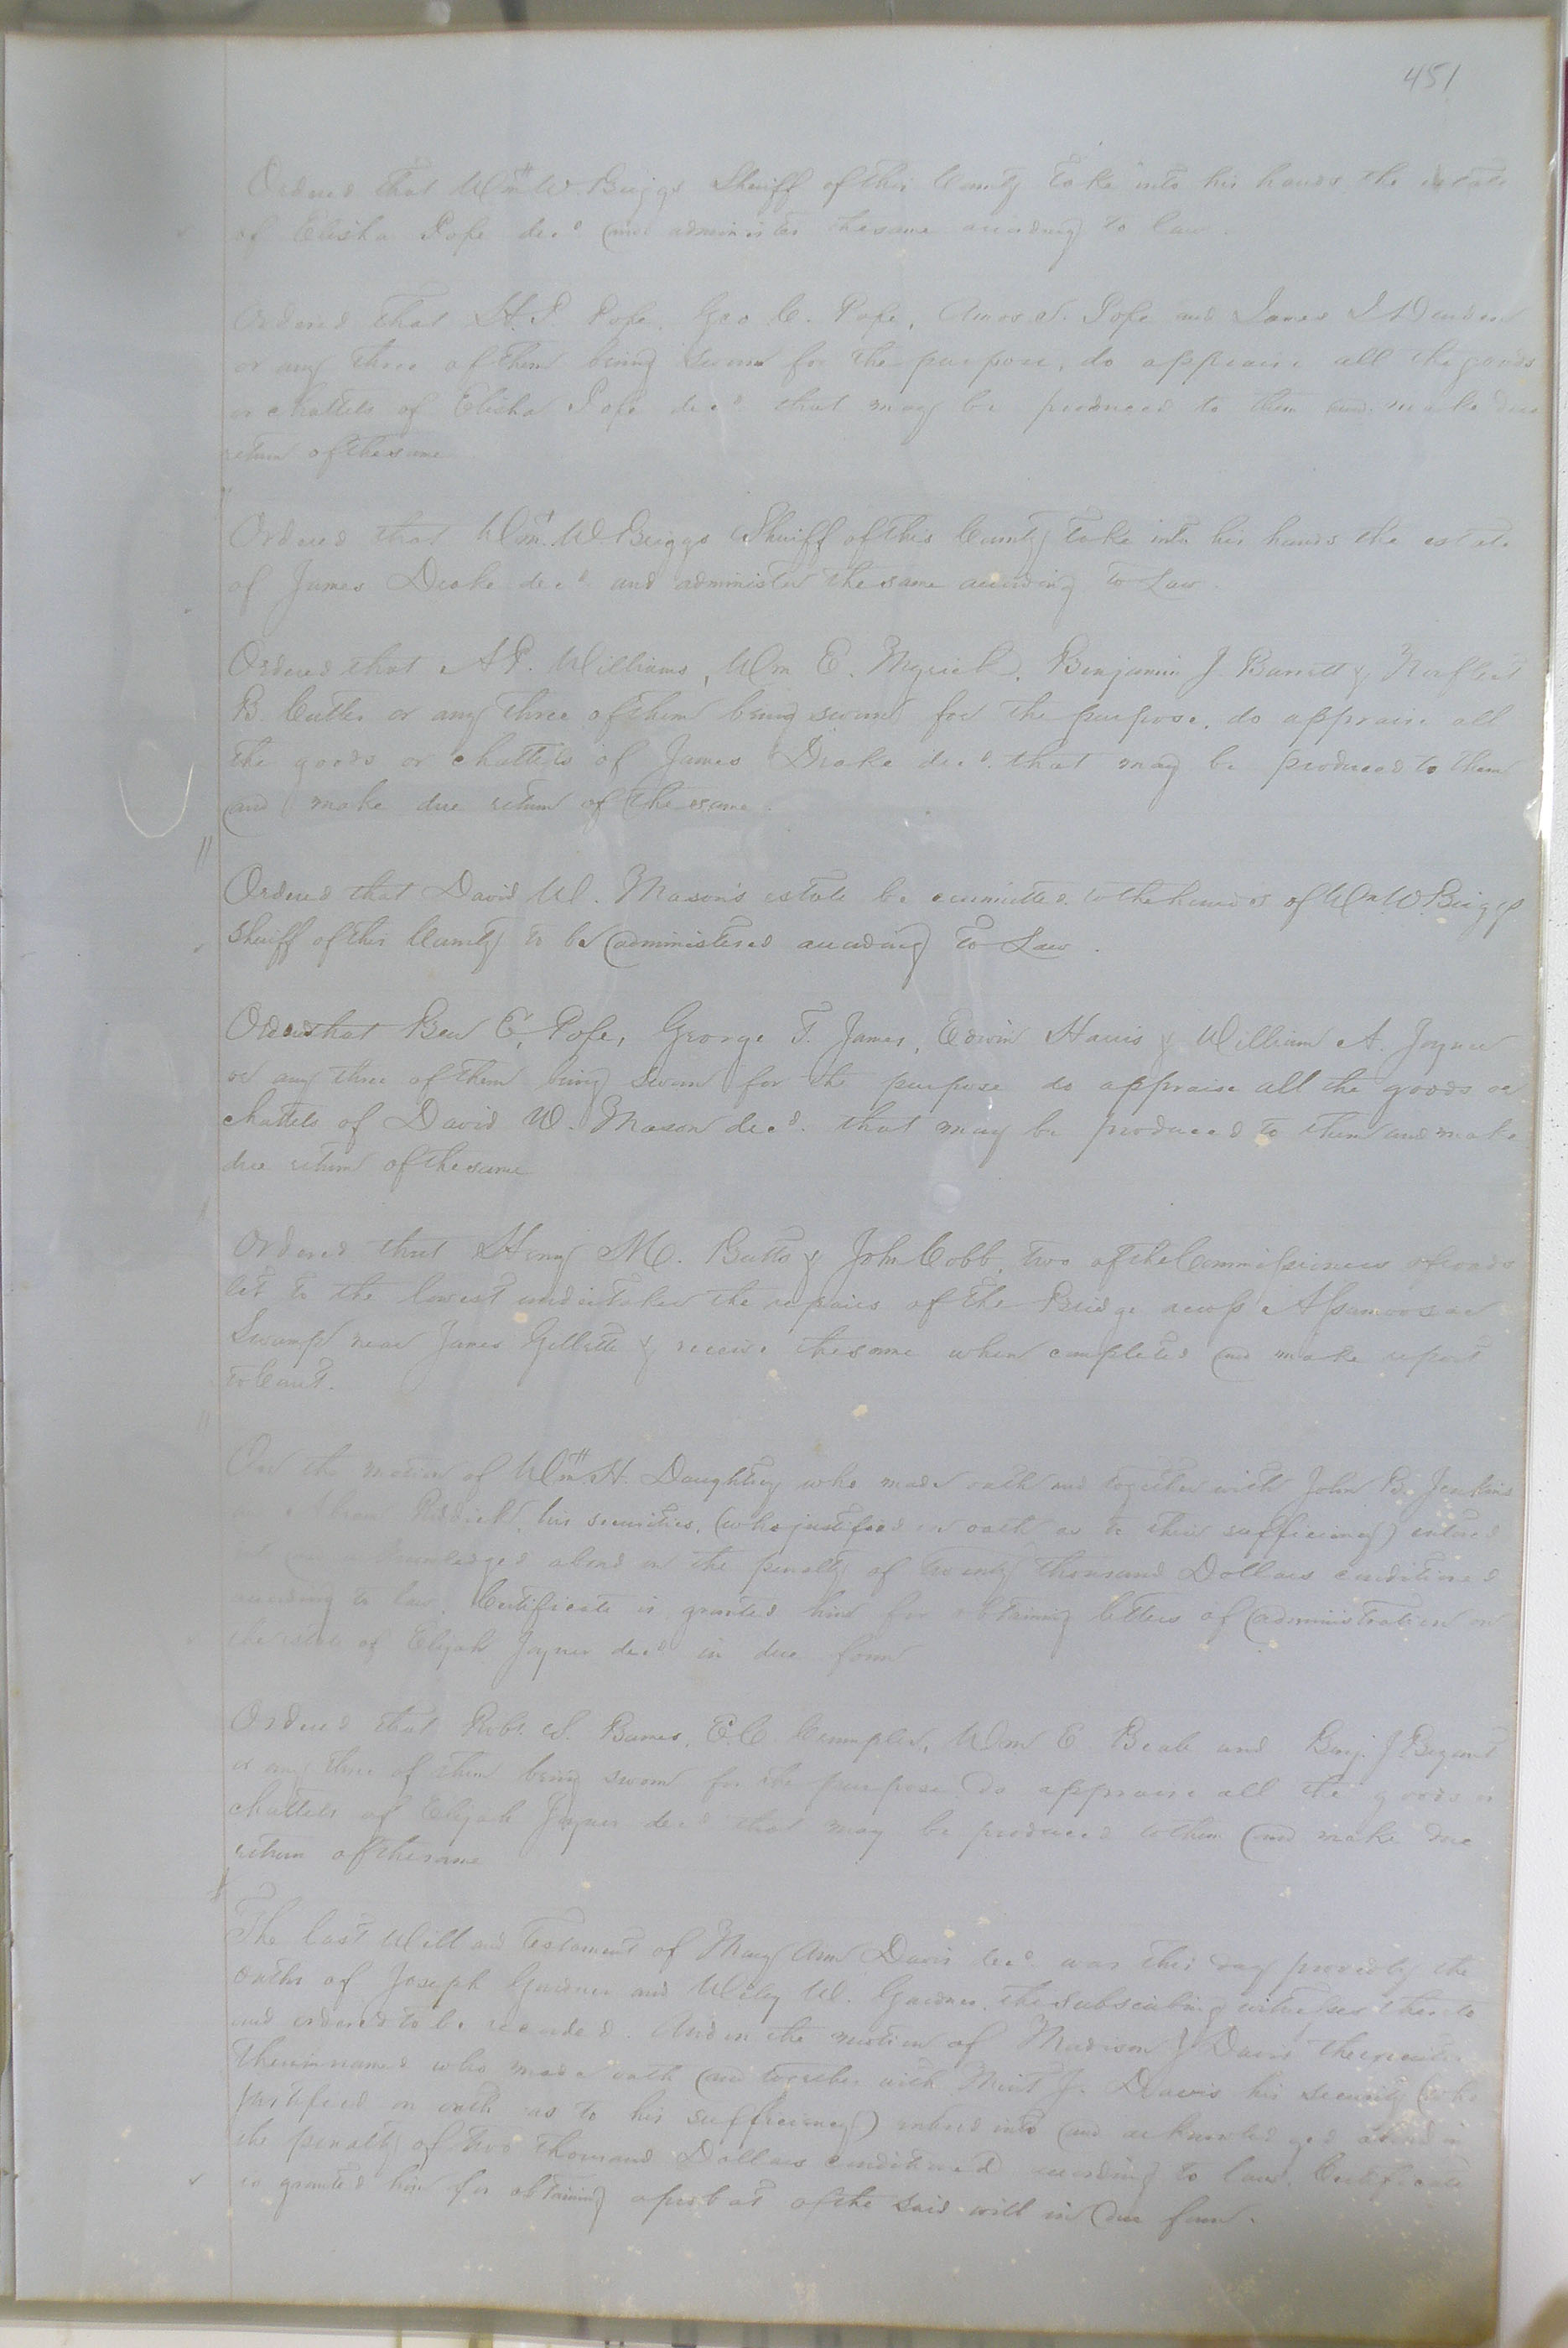 451
Ordered that Wm W. Briggs Sheriff of this County take into his hands the estate
of Elisha Pope decd and administer the same according to law.
Ordered that H. P. Pope, Geo C. Pope, Amos Pope and James
or any three of them being sworn for the purpose, do appraise all the goods
or chattels of Elisha Pope decd that may be produced to them and make due
return of the same
Ordered that Wm. W Briggs Sheriff of this County take into his hands the estate
of James Drake decd and administer the same according to Law.
Ordered that A P. Williams, Wm E. Myrick, Benjamin J. Barrett & Norfleet
B. Cutler or any three of them being sworn for the purpose, do appraise all
the goods or chattels of James Drake decd. that may be produced to them
and make due return of the same.
Ordered that David W. Mason's estate be committed to the hands of Wm W. Briggs
Sheriff of this County to be administered according to Law.
Ordered that Ben E. Pope, George T. James, Edwin Harris & William A. Joyner
or any three of them being sworn for the purpose do appraise all the goods or
chattels of David W. Mason decd. that may be produced to them and make
due return of the same
Ordered that Henry M. Butts & John Cobb, two of the Commissioners of roads
let to the lowest undertaker the repairs of the Bridge across Assamoosac
Swamp near James Gillette & receive the same when completed and make report
to Court.
On the motion of Wm H. Daughtrey who made oath and together with John B. Jenkins
and Abram Riddick, his securities, (who justified on oath as to their sufficiency) entered
into and acknowledged a bond in the penalty of twenty thousand Dollars conditioned
according to law. Certificate is granted him for obtaining letters of administration on
the estate of Elijah Joyner decd in due form
Ordered that Robt. S. Barnes, E. C. Crumpler, Wm E Beale and Benj. J Bryant
or any three of them being sworn for the purpose do appraise all the goods or
chattels of Elijah Joyner decd that may be produced to them and make due
return of the same
The last Will and Testament of Mary Ann Davis decd. was this day proved by the
oaths of Joseph Gardner and Wiley W. Gardner, the subscribing witnesses thereto
and ordered to be recorded. And on the motion of Madison J Davis the executor
therein named who made oath and together with J. Davis his security (who
justified on oath as to his sufficiency) entered into and acknowledged a bond in
the penalty of two thousand Dollars conditioned according to law. Certificate
is granted him for obtaining a probat of the said will in due form.